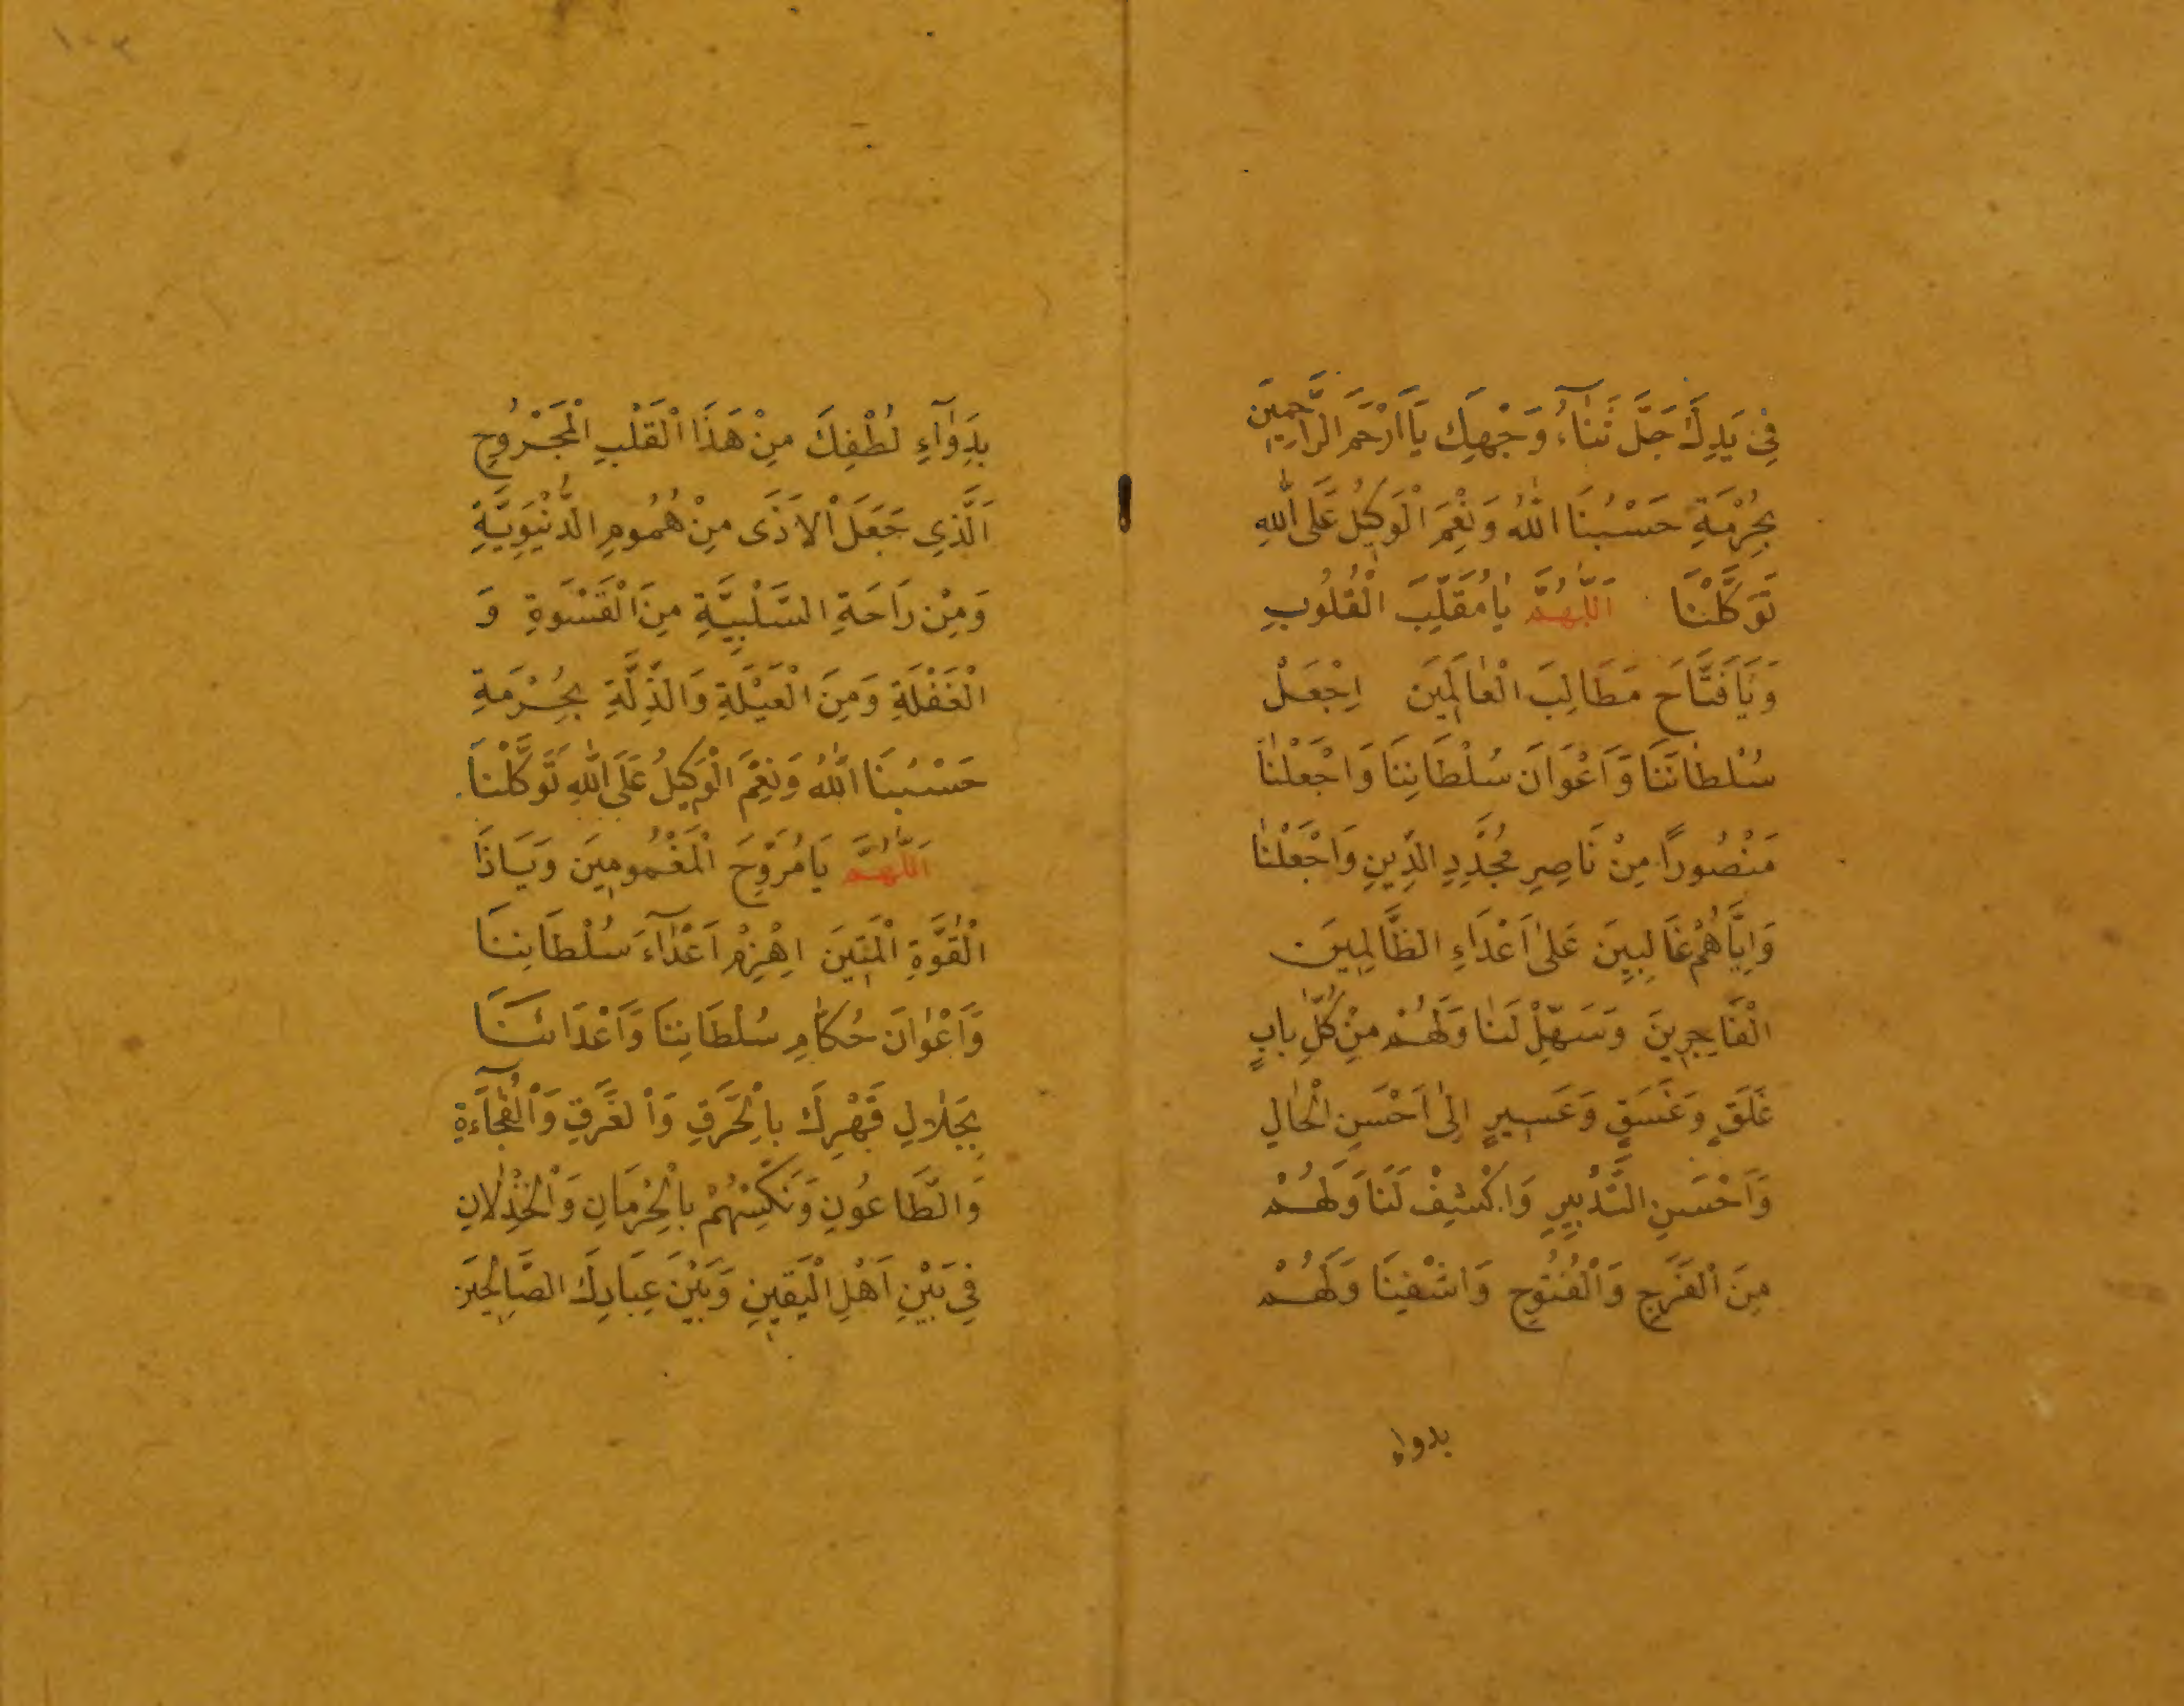 فِي يَدِكَ جَلَّ ثَنَاۤءُ وَجْهِكَ يَا اَرْحَمَ الرَّاحِمِينَ
بِحُرْمَةِ حَسْبُنَا اللّٰهُ وَنِعْمَ الْوَكِيلُ عَلَى اللّٰهِ
تَوَكَّلْنَا اَللّٰهُمَّ يَا مُقَلِّبَ الْقُلُوبِ
وَيَا فَتَّاحَ مَطَالِبَ الْعَالَمِينَ اِجْعَلْ
سُلْطَانَنَا وَاَعْوَانَ سُلْطَانِنَا وَاجْعَلْنَا
مَنْصُورًا مِنْ نَاصِرِ مُجَدِّدِ الدِّينِ وَاجْعَلْنَا
وَاِيَّاهُمْ غَالِبِينَ عَلٰى اَعْدَاءِ الظَّالِمِينَ
الْفَاجِرِينَ وَسَهِّلْ لَنَا وَلَهُمْ مِنْ كُلِّ بَابٍ
غَلَقٍ وَغَسَقٍ وَعَسِيرٍ اِلٰى اَحْسَنِ الْحَالِ
وَاَحْسَنِ التَّدْبِيرِ وَاكْشِفْ لَنَا وَلَهُمْ
مِنَ الْفَرَجِ وَالْفُتُوحِ وَاشْفِنَا وَلَهُمْ
بدواء
١٠٣
بِدَوَاۤءِ لُطْفِكَ مِنْ هَذَا الْقَلْبِ الْمَجْرُوحِ
اَلَّذِي جَعَلَ الْاَذَى مِنْ هُمُومِ الدُّنْيَوِيَّةِ
وَمِنْ رَاحَةِ السَّلْبِيَّةِ مِنَ الْقَسْوَةِ وَ
الْغَفْلَةِ وَمِنَ الْعَيْلَةِ وَالذِّلَّةِ بِحُرْمَةِ
حَسْبُنَا اللّٰهُ وَنِعْمَ الْوَكِيلُ عَلَى اللّٰهِ تَوَكَّلْنَا
اَللّٰهُمَّ يَا مُرَوِّحَ الْمَغْمُومِينَ وَيَاذَا
الْقُوَّةِ الْمَتِينَ اِهْزِمْ اَعْدَاۤءَ سُلْطَانِنَا
وَاَعْوَانَ حُكَّامِ سُلْطَانِنَا وَاَعْدَائَنَا
بِجَلَالِ قَهْرِكَ بِالْحَرَقِ وَالْغَرَقِ وَالْفُجَاۤءَةِ
وَالطَّاعُونِ وَنَكِّسْهُمْ بِالْحِرْمَانِ وَالْخِذْلَانِ
فِي بَيْنِ اَهْلِ الْيَقِينِ وَبَيْنَ عِبَادِكَ الصَّالِحِينَ